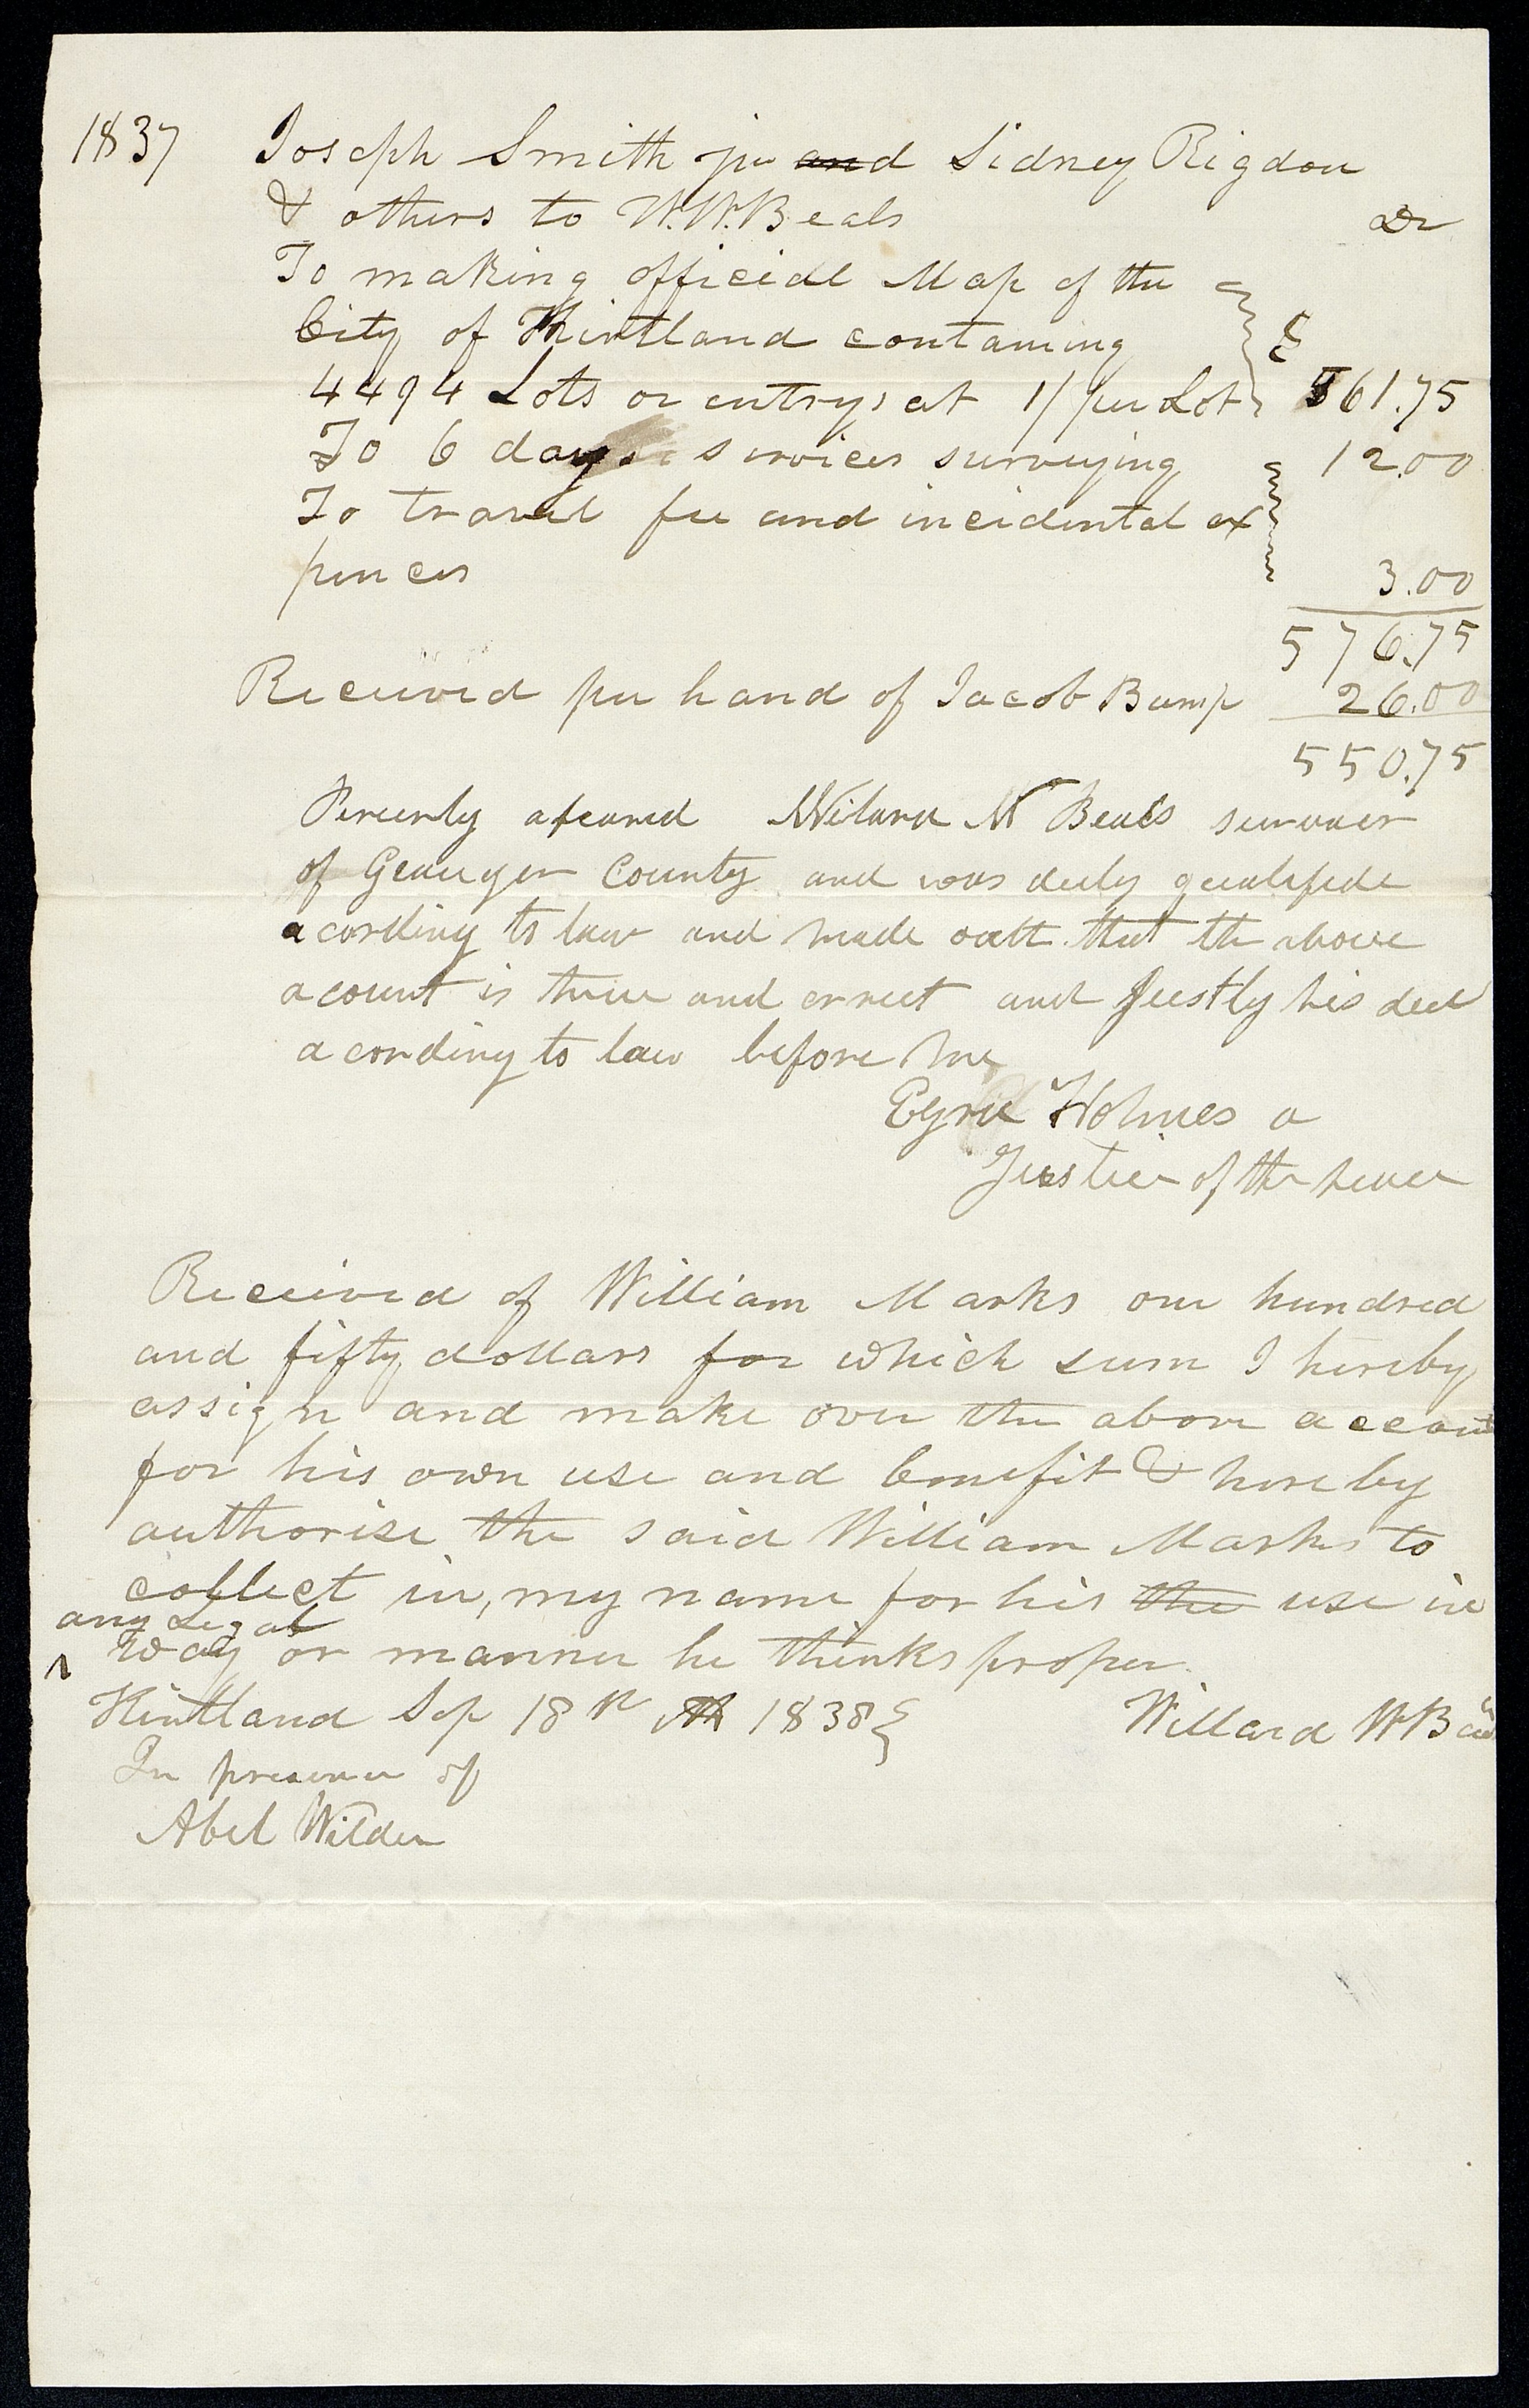 1837 Joseph Smith jr and Sidney Rigdon
& others to W. W. Beals Dr
To making official Map of the
City of Kirtland containing
4494 Lots or entrys at 1/ per Lot $ 561.75
To 6 days services surveying 12.00
To travel fee and incidental ex
pences 3.00
576.75
Received per hand of Jacob Bump 26.00
550.75
Percenly apeared Wilard W Beals survaer
of Geauger County and was duly qualifide
acording to law and made oatt that the above
acount is true and correct and justly his due
acording to law before me
Ezra Holmes a
Justice of the peace
Received of William Marks one hundred
and fifty dollars for which sum I hereby
assign and make over the above account
for his own use and benefit & hereby
authorise the said William Marks to
collect in, my name for his the use in
any Legal
^ way or manner he thinks proper
Kirtland Sep 18th 1838 Willard W Beals
In presence of
Abel Wilder